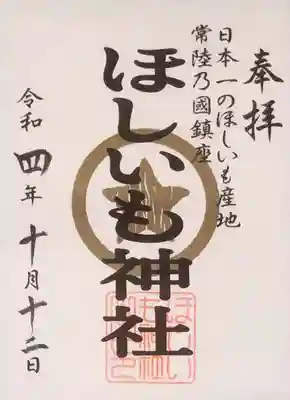 奉拝
日本一のほしいも産地
常陸乃國鎮座
ほしいも神社
令和四年十月十二日